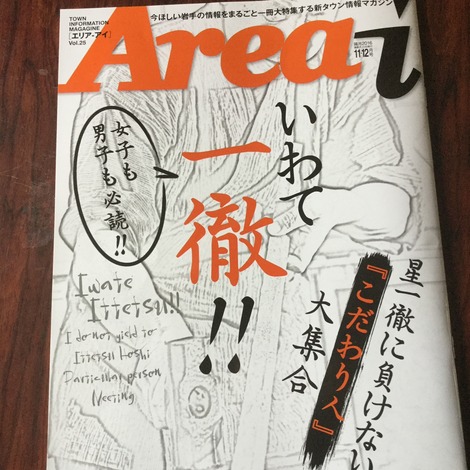 今ほしい岩手の情報をまるごと一冊大特集する新タウン情報マガジン
TOWN
INFORMATION
MAGAZINE
[エリア・アイ]
Vol.25
Area i
11・12
女子も
男子も必読!!
いわて
一徹!!
星一徹に負けない
『こだわり人』
大集合
Iwate
Ittetsu!!
I do not yield to
Ittetsu hoshi
Particular person
Meeting